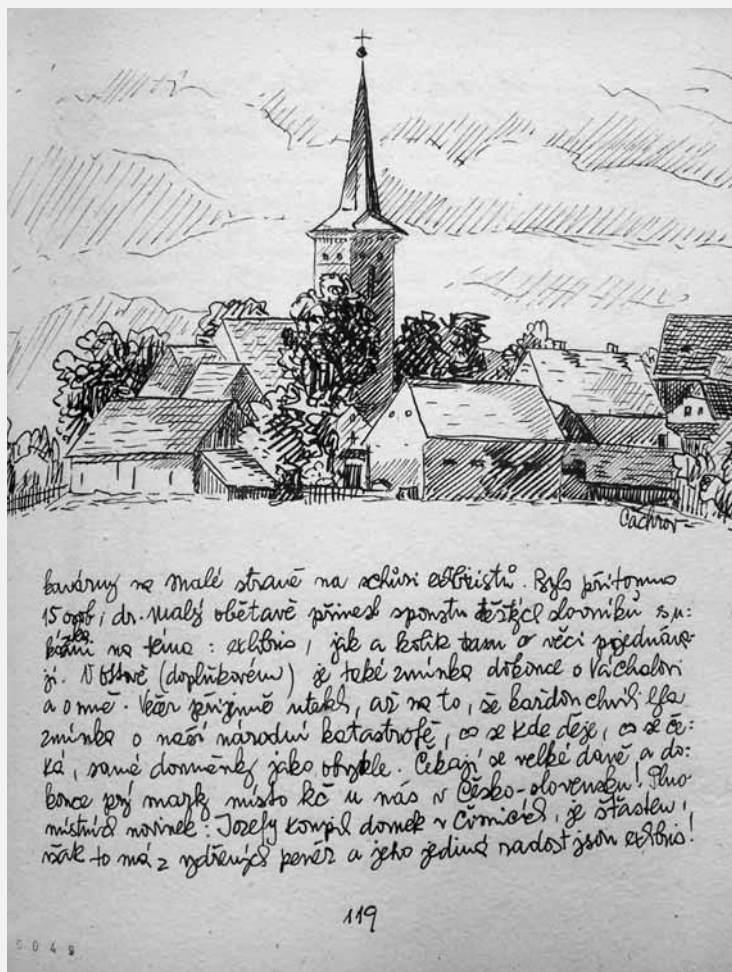 Čachrov
kavárny na Malé straně na schůzi exlibristů. Bylo přítomno
15 osob, dr. Malý obětavě přinesl spoustu těžkých slovníků s u-
kázkami na téma: exlibris, jak a kolik tam o věci pojednáva-
jí. V Ottově (doplňkovém) je také zmínka dokonce o Váchalovi
a o mně. Večer příjemně utekl, až na to, že každou chvíli
zmínka o naší národní katastrofě, co se kde děje, co se če-
ká, samé domněnky jako obvykle. Čekají se velké daně a do-
konce prý marky místo kč u nás v Česko-slovensku!
místních novinek: Josefy koupil domek v Čimicích, je šťasten,
však to má z vydřených peněz a jeho jediná radost jsou exlibris!
119
5048